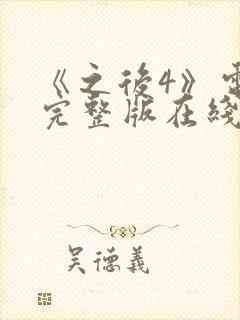 《之後4》電
完整版在綫
吳德義